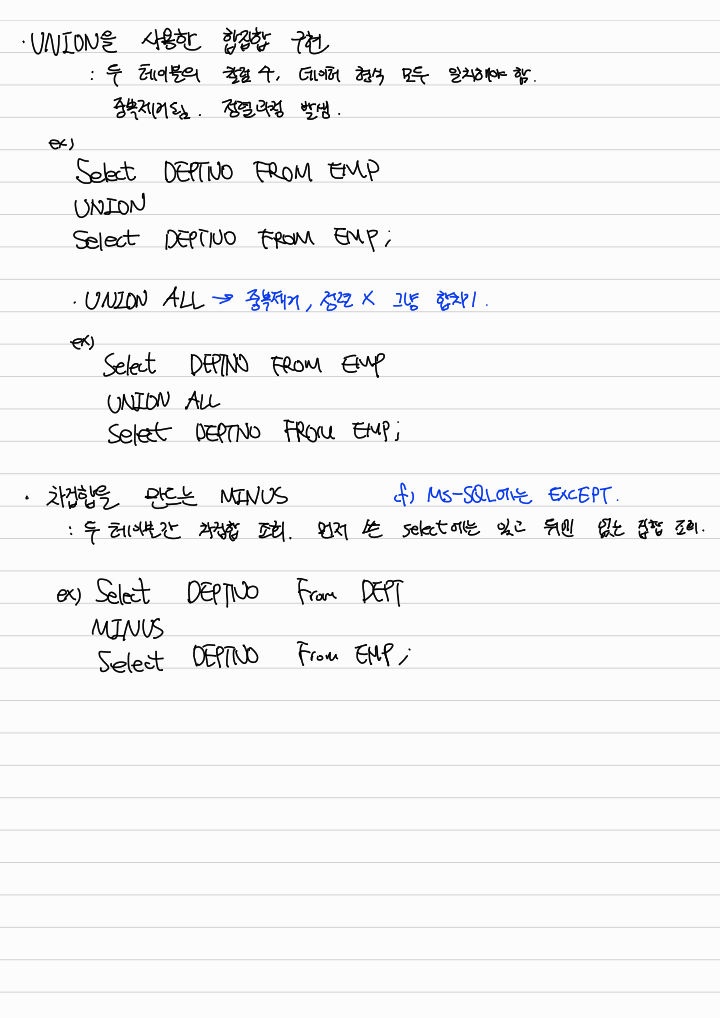 · UNION을 사용한 합집합 구현
: 두 테이블의 컬럼 수, 데이터 형식 모두 일치해야 함.
중복제거됨. 정렬과정 발생.
ex)
Select DEPTNO FROM EMP
UNION
Select DEPTNO FROM EMP;
· UNION ALL → 중복제거, 정렬 X 그냥 합치기.
ex)
Select DEPTNO FROM EMP
UNION ALL
Select DEPTNO FROM EMP;
· 차집합을 만드는 MINUS cf) MS-SQL에는 EXCEPT.
: 두 테이블간 차집합 조회. 먼저 쓴 select에는 있고 뒤엔 없는 집합 조회.
ex) Select DEPTNO From DEPT
MINUS
Select DEPTNO From EMP;